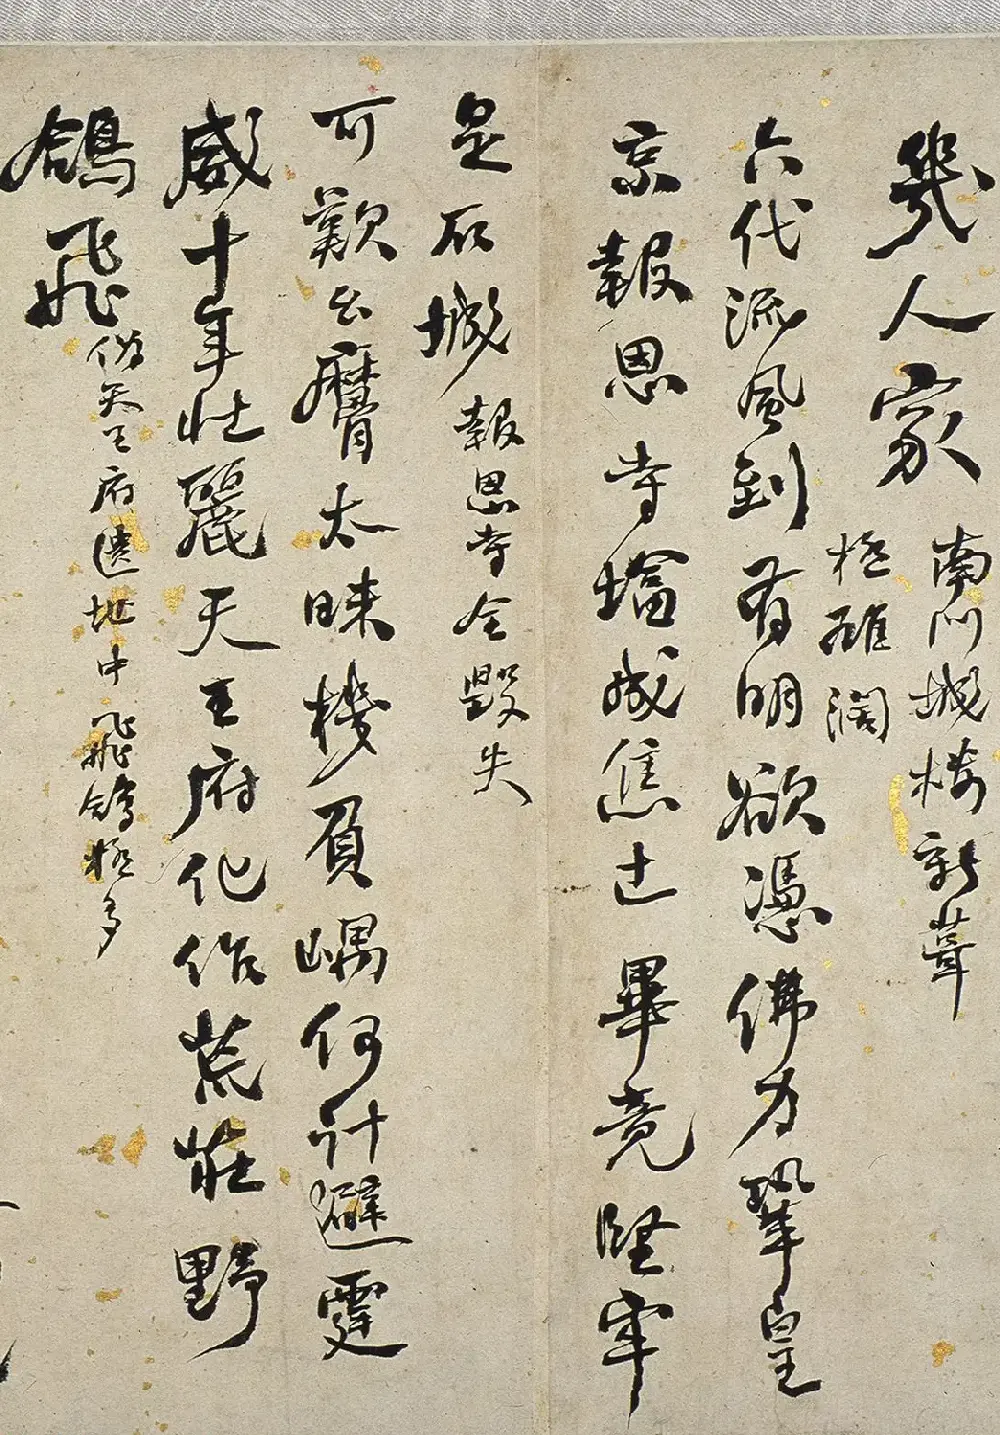 幾人家
南門城樓新葺
極雄闊
六代流風到有明欲憑佛力鞏皇
京報恩寺塔成焦土畢竟堅牢
是石城
報恩寺全毀失
可歎公膺太昧機負嵎何計避霆
威十年壯麗天王府化作荒莊野
鴿飛
偽天王府遺址中飛鴿極多